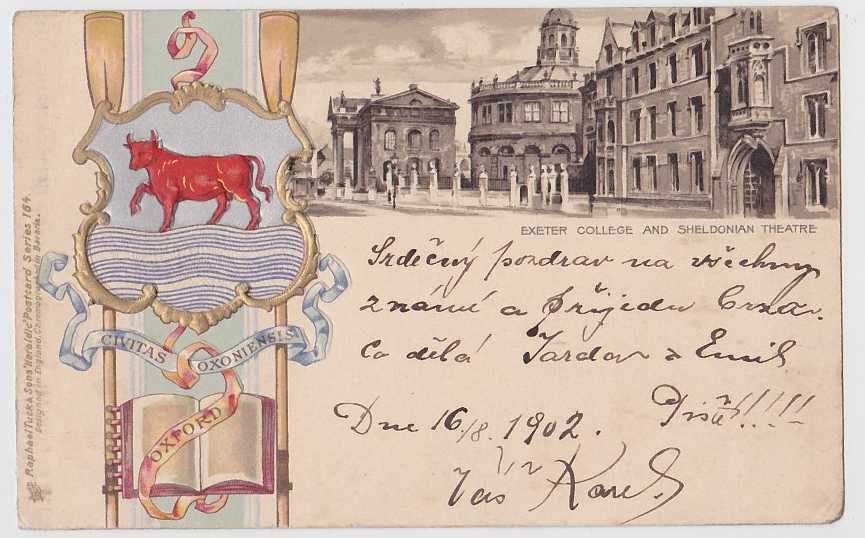 Raphael Tuck & Sons "Heraldic" Postcard Series 164.
Designed in England, Chromographed in Bavaria.
CIVITAS OXONIENSIS
OXFORD
EXETER COLLEGE AND SHELDONIAN THEATRE
Srdečný pozdrav na všechny
známé a přijedu
Co dělá a Emil
Pište!!!!!
Dne 16/8. 1902.
Váš Karel